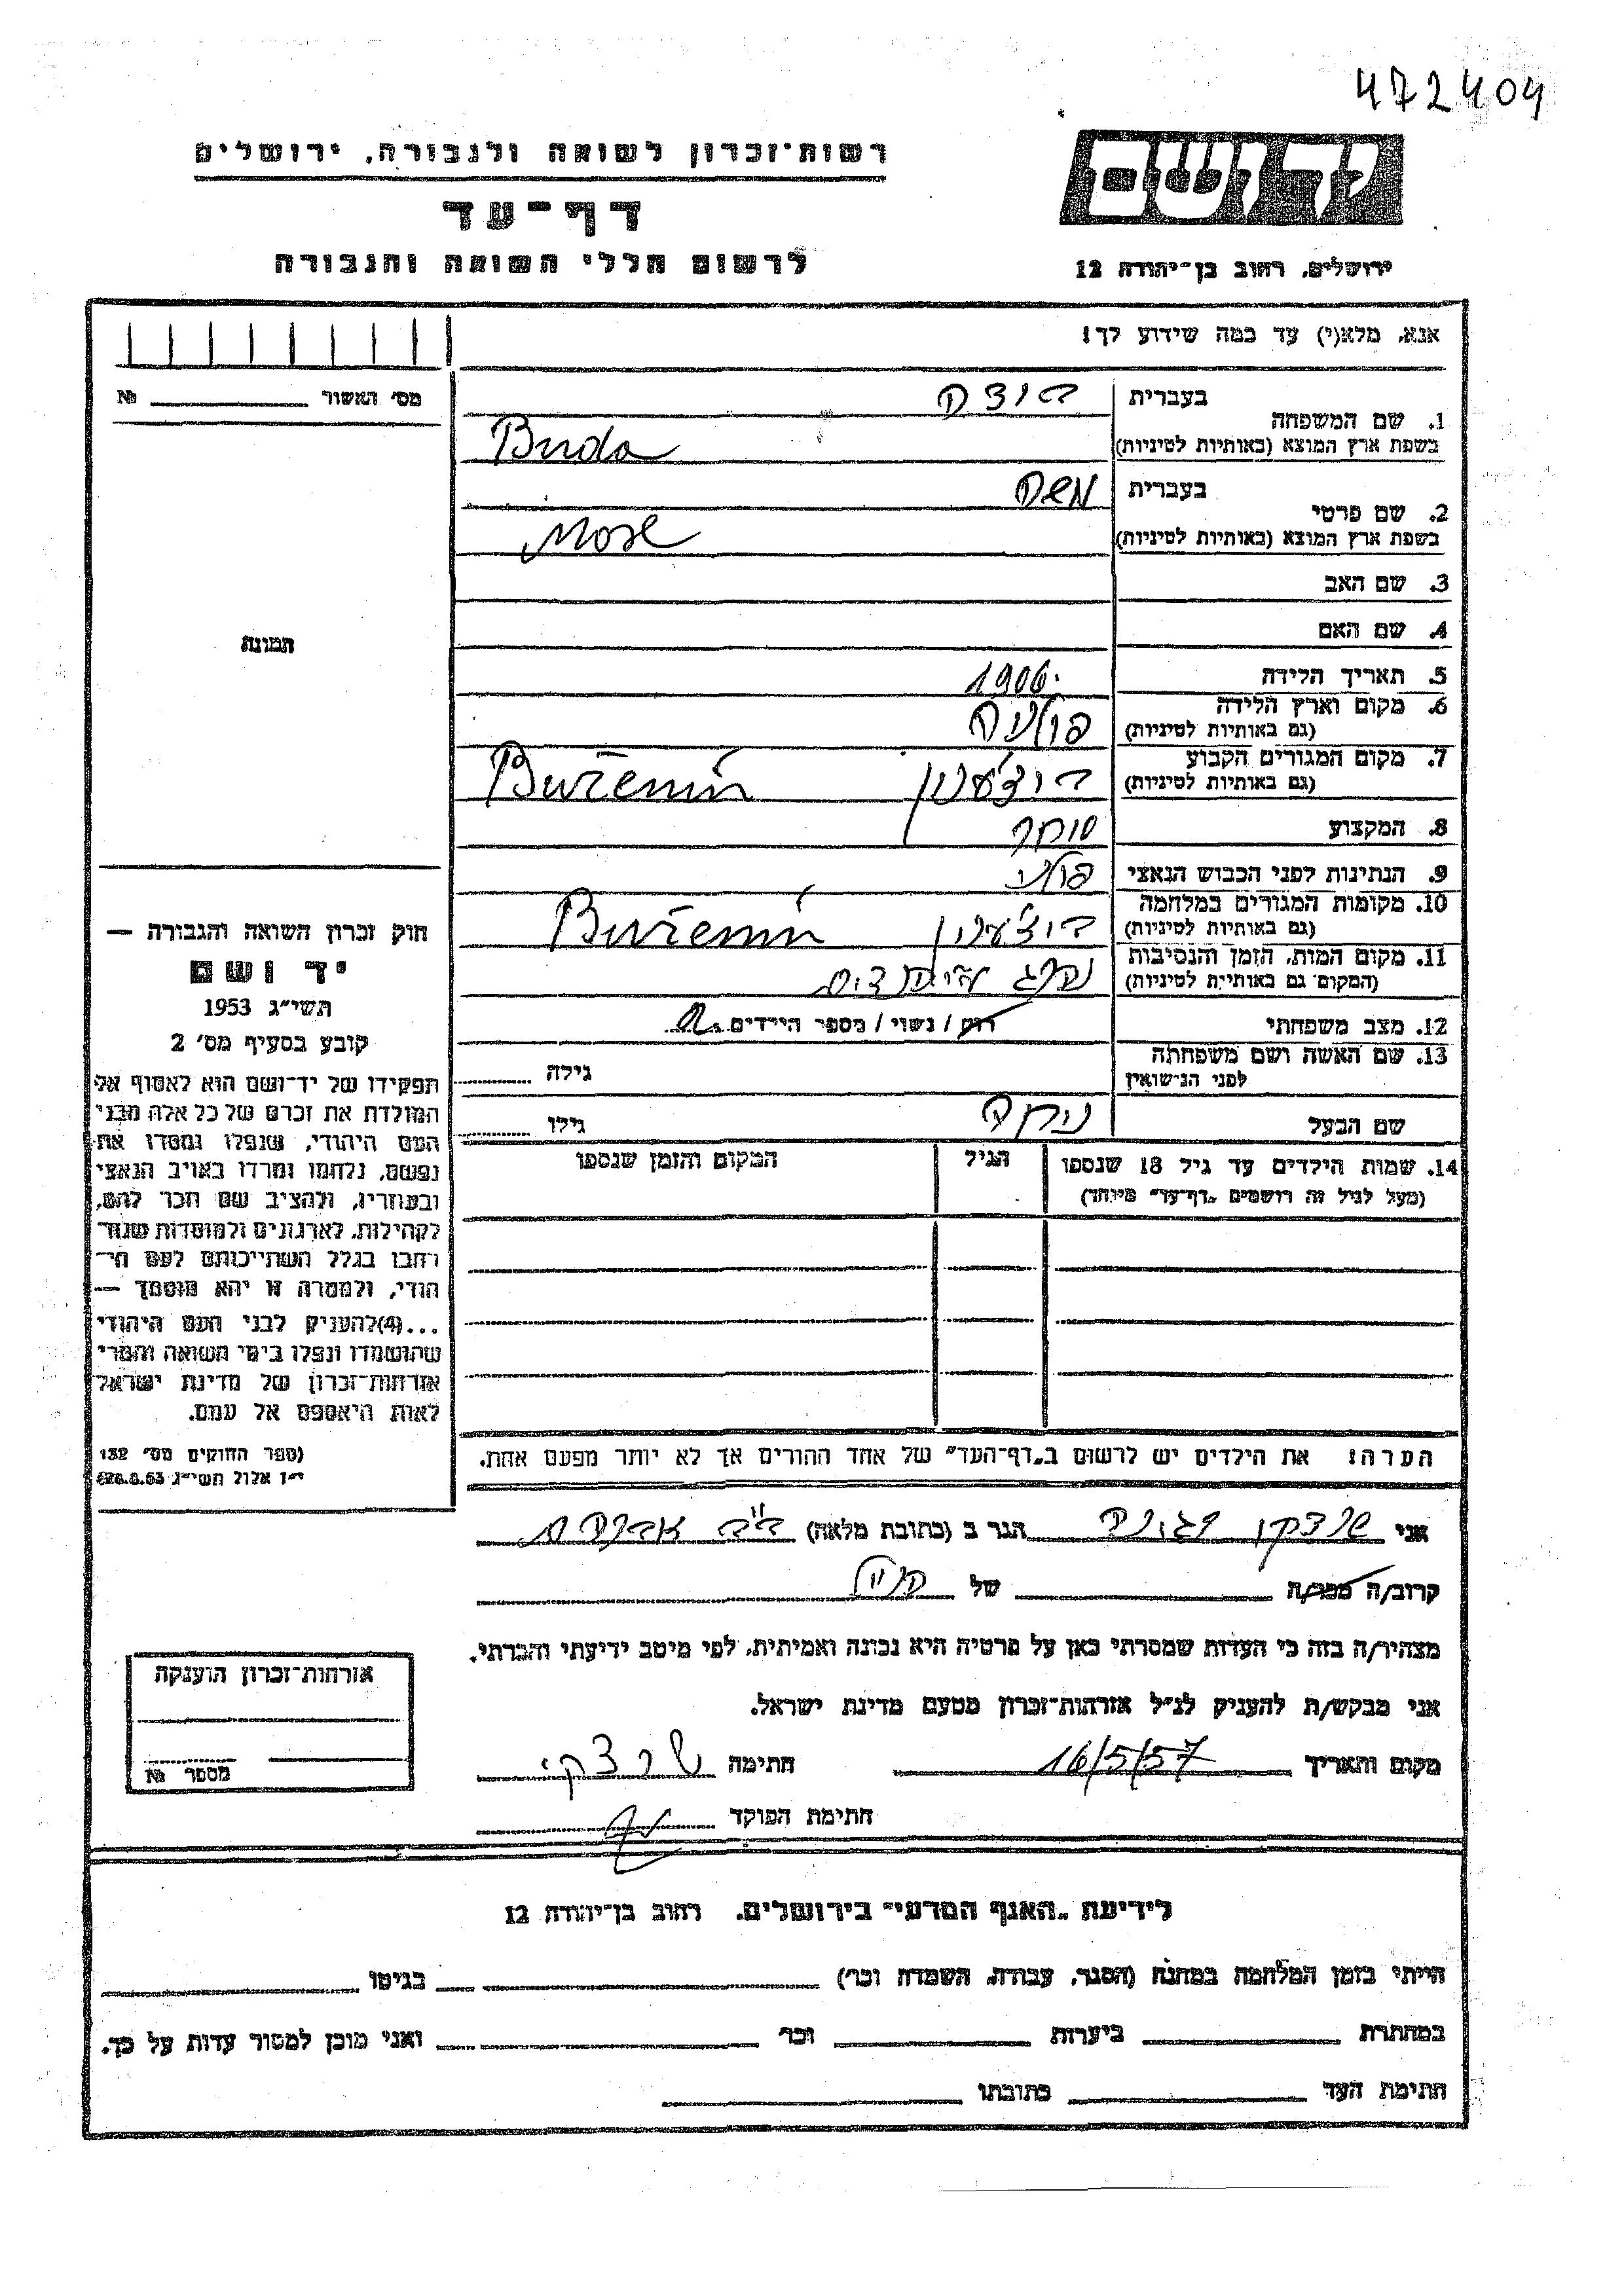 472404
רשות־זכרון לשואה ולגבורה, ירושלים
יד ושם
דף־עד
לרשום חללי השואה והגבורה
ירושלים, רחוב בן־יהודה 12
אנא, מלא(י) עד כמה שידוע לך:
מס׳ האשור № ________
1. שם המשפחה
בעברית
בשפת ארץ המוצא (באותיות לטיניות) Buda
2. שם פרטי
בעברית משה
בשפת ארץ המוצא (באותיות לטיניות) Mose
3. שם האב
4. שם האם
תמונה
5. תאריך הלידה 1906
6. מקום וארץ הלידה פולניה
(גם באותיות לטיניות)
7. מקום המגורים הקבוע Buženin
(גם באותיות לטיניות)
8. המקצוע סוחר
9. הנתינות לפני הכבוש הנאצי פולני
10. מקומות המגורים במלחמה Buženin
(גם באותיות לטיניות)
11. מקום המות, הזמן והנסיבות
(המקום גם באותיות לטיניות)
12. מצב משפחתי רוק / נשוי / מספר הילדים
13. שם האשה ושם משפחתה גילה
לפני הנישואין
שם הבעל גילו
14. שמות הילדים עד גיל 18 שנספו הגיל המקום והזמן שנספו
(מעל לגיל זה רושמים "דף־עד" מיוחד)
הערה: את הילדים יש לרשום ב"דף־העד" של אחד ההורים אך לא יותר מפעם אחת.
חוק זכרון השואה והגבורה —
יד ושם
תשי״ג 1953
קובע בסעיף מס׳ 2
תפקידו של יד־ושם הוא לאסוף אל
המולדת את זכרם של כל אלה מבני
העם היהודי, שנפלו ומסרו את
נפשם, נלחמו ומרדו באויב הנאצי
ובעוזריו, ולהציב שם וזכר להם,
לקהילות, לארגונים ולמוסדות שנח־
רבו בגלל השתייכותם לעם הי־
הודי, ולמטרה זו יהא מוסמך —
...(4)להעניק לבני העם היהודי
שהושמדו ונפלו בימי השואה והמרי
אזרחות־זכרון של מדינת ישראל
לאות היאספם אל עמם.
(ספר החוקים מס׳ 132
י״ז אלול תשי״ג 28.8.53)
אני הגר ב (כתובת מלאה)
קרוב/ה מכר/ה של
מצהיר/ה בזה כי העדות שמסרתי כאן על פרטיה היא נכונה ואמיתית, לפי מיטב ידיעתי והכרתי.
אני מבקש/ת להעניק לנ״ל אזרחות־זכרון מטעם מדינת ישראל.
מקום ותאריך 16/5/57 חתימה
חתימת הפוקד
אזרחות־זכרון הוענקה
מספר №
לידיעת "האגף המדעי" בירושלים, רחוב בן־יהודה 12
הייתי בזמן המלחמה במחנה (הסגר, עבודה, השמדה וכו׳) ________ בגיטו ________
במחתרת ________ ביערות ________ וכו׳ ________ ואני מוכן למסור עדות על כך.
חתימת העד ________ כתובתו ________